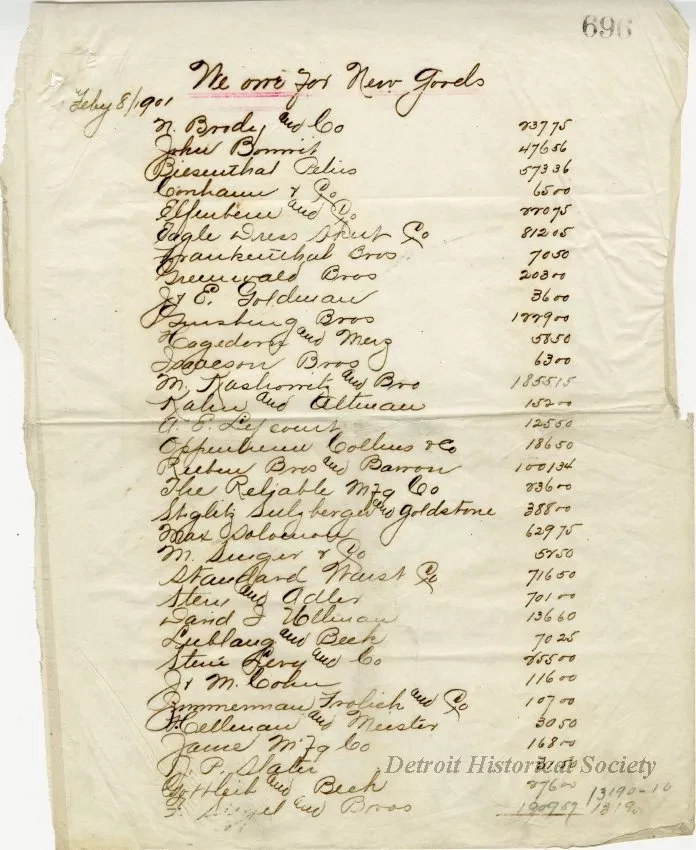 696
We owe for New Goods
Feby 8/1901
N. Brody and Co 23775
John Bonwit 47656
Biesenthal Pelus 57336
Conhaim & Co 6500
Elfenbein and Co 22075
Eagle Dress Skirt Co 81205
Frankenthal Bros 7050
Greenwald Bros 20300
J & E. Goldman 3600
Ginsburg Bros 122900
Hagedorn and Merz 5850
Isaacson Bros 6300
M. Rashowitz and Bro 185515
Kahn and Altman 15200
A. E. Lycourt 12550
Oppenheim Collins & Co 18650
Reuben Bros and Barron 100134
The Reliable Mfg Co 23600
Stiglitz Sulzberger and Goldstone 38800
Max Solomon 62975
M. Singer & Co 5250
Standard Waist Co 71650
Stern and Adler 70100
David J Ullman 13660
Lieblang and Beck 7025
Stein Levy and Co 25500
J & M. Cohn 11600
Zimmerman Frolich and Co 10700
Hellman and Meister 3050
Janie Mfg Co 16800
N. P. Slater
Gottleib and Beck 27600 13190-10
and Bros 190957 1319
Detroit Historical Society